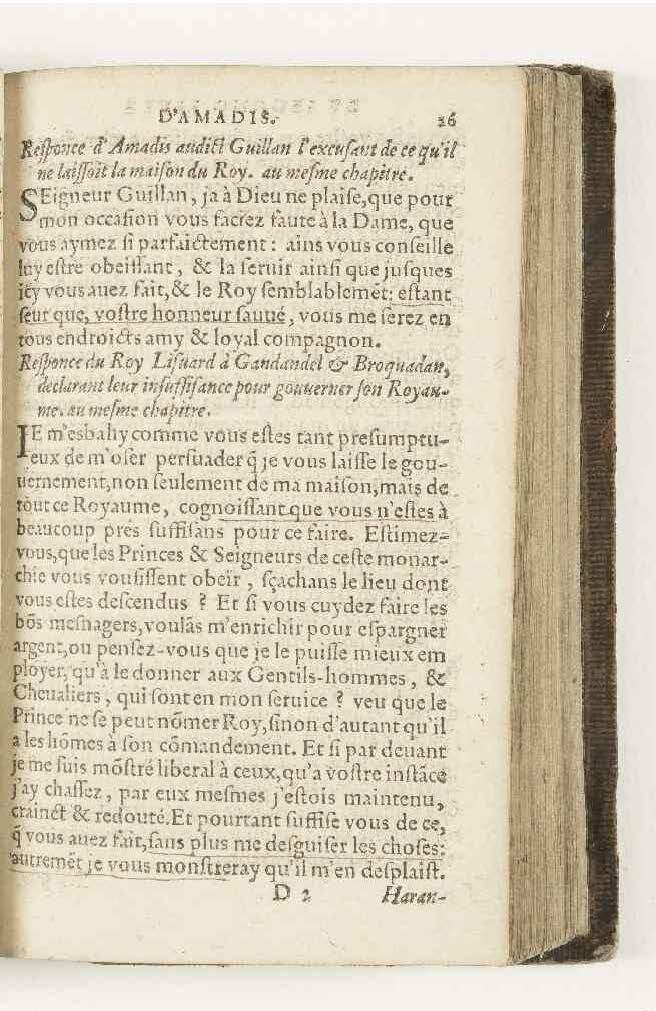 D'AMADIS. 26
Responce d'Amadis audict Guillan l'excusant de ce qu'il
ne laissoit la maison du Roy. au mesme chapitre.
SEigneur Guillan, ja à Dieu ne plaise, que pour
mon occasion vous faciez faute à la Dame, que
vous aymez si parfaictement : ains vous conseille
luy estre obeissant, & la seruir ainsi que jusques
icy vous auez fait, & le Roy semblablemēt: estant
seur que, vostre honneur sauué, vous me serez en
tous endroicts amy & loyal compagnon.
Responce du Roy Lisuard à Gandandel & Broquadan,
declarant leur insuffisance pour gouuerner son Royau-
me. au mesme chapitre.
IE m'esbahy comme vous estes tant presumptu-
eux de m'oser persuader q̃ je vous laisse le gou-
uernement, non seulement de ma maison, mais de
tout ce Royaume, cognoissant que vous n'estes à
beaucoup prés suffisans pour ce faire. Estimez-
vous, que les Princes & Seigneurs de ceste monar-
chie vous vousissent obeir, sçachans le lieu dont
vous estes descendus ? Et si vous cuydez faire les
bōs mesnagers, voulās m'enrichir pour espargner
argent, ou pensez-vous que je le puisse mieux em
ployer, qu'à le donner aux Gentils-hommes, &
Cheualiers, qui sont en mon seruice ? veu que le
Prince ne se peut nōmer Roy, sinon d'autant qu'il
a les hōmes à son cōmandement. Et si par deuant
je me suis mōstré liberal à ceux, qu'a vostre instāce
j'ay chassez, par eux mesmes j'estois maintenu,
crainct & redouté. Et pourtant suffise vous de ce,
q̃ vous auez fait, sans plus me desguiser les choses:
autremēt je vous monstreray qu'il m'en desplaist.
D 2 Haran-